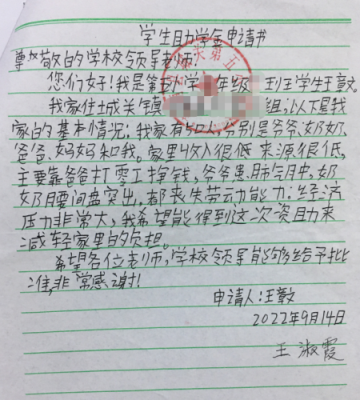 学生助学金申请书
尊敬的学校领导老师:
您们好!我是第五小学 年级 班学生王敼
我家住城关镇 组,以下是我
家的基本情况:我家有 口人分别是爷爷、奶奶、
爸爸、妈妈和我。家里收入很低来源很低,
主要靠爸爸打零工挣钱,爷爷患肺气肿,奶
奶腰间盘突出,都丧失劳动能力;经济
压力非常大,我希望能得到这次资助来
减轻家里的负担。
希望各位老师,学校领导能够给予批
准,非常感谢!
申请人:王
2022年9月14日
王淑霞